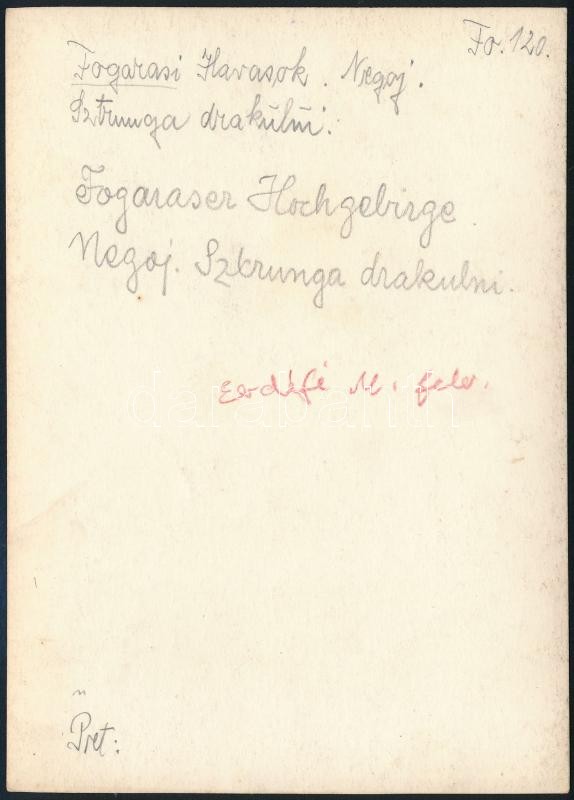 Fo. 120.
Fogarasi Havasok. Negoj.
Sztrunga drakului.
Fogaraser Hochgebirge.
Negoj. Sztrunga drakulni.
Erdéfi M. felv.
darabanth
"
Pret: